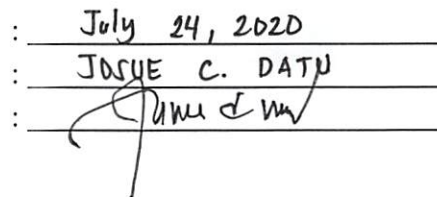 : July 24, 2020
: JOSUE C. DATU
: